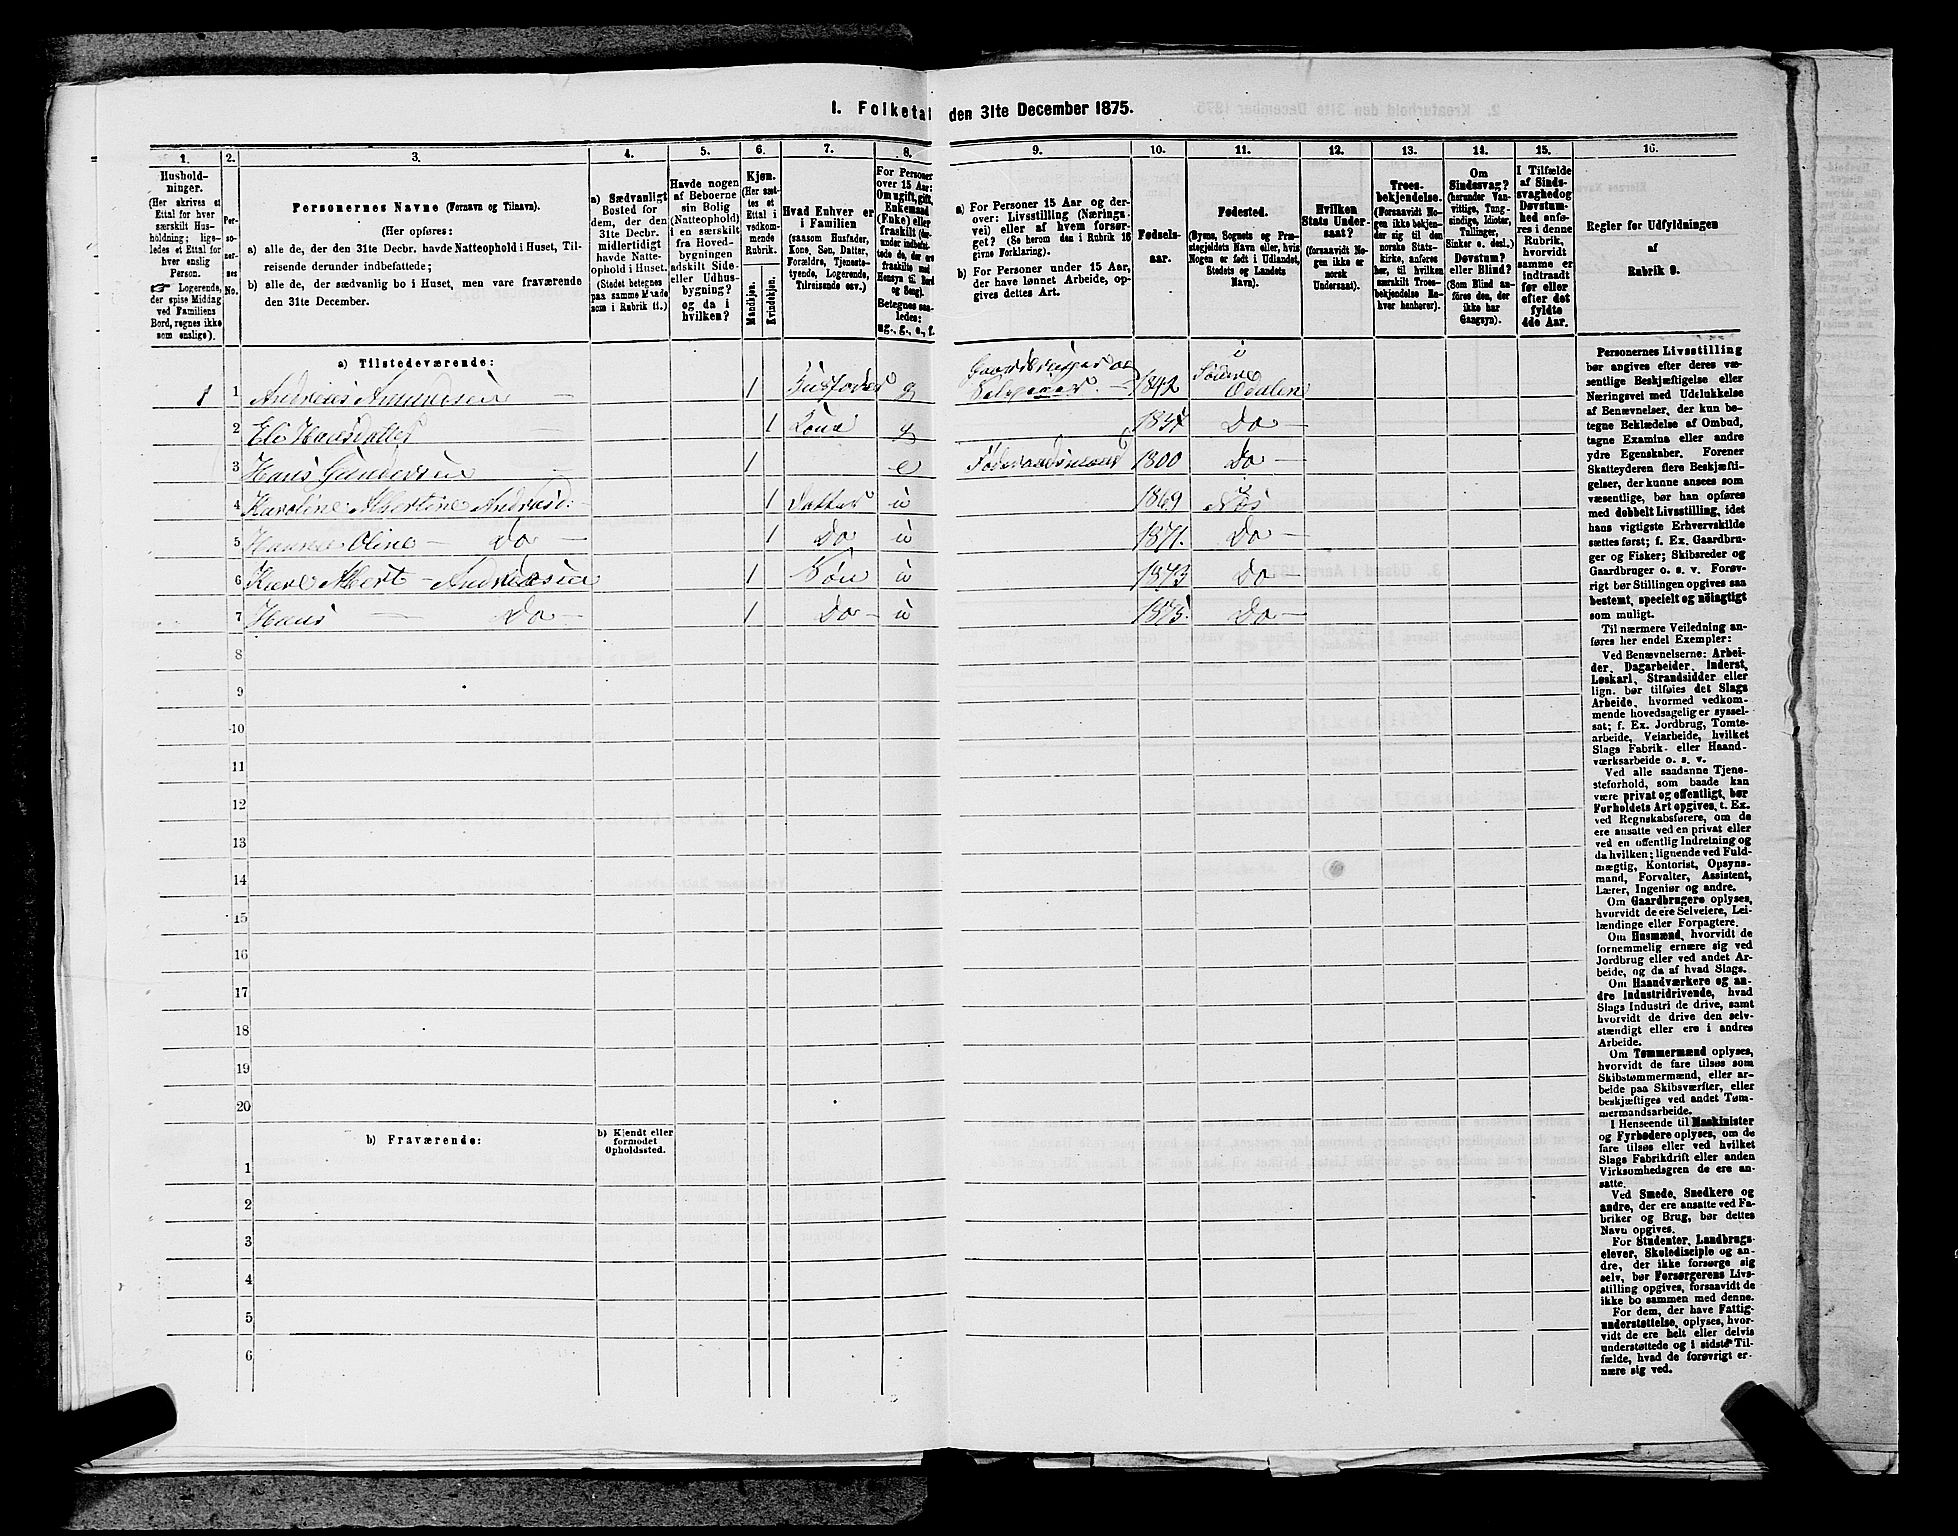 1. Folketal den 31te December 1875.
1. 2. 3. 4. 5. 6. 7. 8. 9. 10. 11. 12. 13. 14. 15. 16.
Hushold-
ninger.
(Her skrives et
Ettal for hver
særskilt Hus-
holdning; lige-
ledes et Ettal for
hver enslig
Person.
☞ Logerende,
der spise Middag
ved Familiens
Bord, regnes ikke
som enslige).
Per-
so-
ner-
nes
No.
Personernes Navne (Fornavn og Tilnavn).
(Her opføres:
a) alle de, der den 31te Decbr. havde Natteophold i Huset, Til-
reisende derunder indbefattede;
b) alle de, der sædvanlig bo i Huset, men vare fraværende
den 31te December.
a) Sædvanligt
Bosted for
dem, der den
31te Decbr.
midlertidigt
havde Natte-
ophold i Huset.
(Stedet betegnes
paa samme Maade
som i Rubrik 11.)
Havde nogen
af Beboerne
sin Bolig
(Natteophold)
i en særskilt
fra Hoved-
bygningen
adskilt Side-
eller Udhus-
bygning?
og da i
hvilken?
Kjøn.
(Her sæt-
tes et
Ettal i
vedkom-
mende
Rubrik.
Mandkjøn.
Kvindekjøn.
Hvad Enhver er
i Familien
(saasom Husfader,
Kone, Søn, Datter,
Forældre, Tjeneste-
tyende, Logerende,
Tilreisende osv.)
For Personer
over 15 Aar:
Om ugift, gift,
Enkemand
(Enke) eller
fraskilt
Betegnes saa-
ledes:
ug., g., e., f.
a) For Personer 15 Aar og der-
over: Livsstilling (Nærings-
vei) eller af hvem forsør-
get? (Se herom den i Rubrik 16
givne Forklaring).
b) For Personer under 15 Aar,
der have lønnet Arbeide, op-
gives dettes Art.
Fødsels-
aar.
Fødested.
(Byens, Sognets og Præ-
stegjeldets Navn eller, hvis
Nogen er født i Udlandet,
Stedets og Landets
Navn).
Hvilken
Stats Under-
saat?
(forsaavidt No-
gen ikke er
norsk
Undersaat).
Troes-
bekjendelse.
(Forsaavidt No-
gen ikke bekjen-
der sig til den
norske Stats-
kirke, anføres
her, til hvilken
særskilt Troes-
bekjendelse En-
hver henhører).
Om
Sindssvag?
(herunder Van-
vittige, Tung-
sindige, Idioter,
Tullinger,
Sinker o. desl.)
Døvstum?
eller Blind?
(Som Blind an-
føres den, der
ikke har
Gangsyn).
I Tilfælde
af Sinds-
svaghed og
Døvstum-
hed anfø-
res i denne
Rubrik,
hvorvidt
samme er
indtraadt
før eller
efter det
fyldte
4de Aar.
Regler for Udfyldningen
af
Rubrik 9.
a) Tilstedeværende:
1 1 Andreas Amundsen 1 Husfader g Gaardbruger og Selveier 1842 i Søndre Odalen
2 Eli Hansdatter 1 Kone g Do
3 Hans Gundersen 1 e Føderaadsmand 1800 Do
4 Karoline Albertine Andreasd: 1 Datter u 1869 i Næs
5 Oline Do 1 Do u 1871. Do
6 Karl Albert Andreasen 1 Søn u 1873 Do
7 Hans Do 1 Do u 1875. Do
8
9
10
11
12
13
14
15
16
17
18
19
20
b) Fraværende:
b) Kjendt eller
formodet
Opholdssted.
1
2
3
4
5
6
Personernes Livsstilling
bør angives efter deres væ-
sentlige Beskjæftigelse eller
Næringsvei med Udelukkelse
af Benævnelser, der kun be-
tegne Beklædelse af Ombud,
tagne Examina eller andre
ydre Egenskaber. Forener
Skatteyderen flere Beskjæfti-
gelser, der kunne ansees som
væsentlige, bør han opføres
med dobbelt Livsstilling, idet
hans vigtigste Erhvervskilde
sættes først; f. Ex. Gaardbru-
ger og Fisker; Skibsreder og
Gaardbruger o. s. v. Forøv-
rigt bør Stillingen opgives saa
bestemt, specielt og nøiagtigt
som muligt.
Til nærmere Veiledning an-
føres her endel Exempler:
Ved Benævnelserne: Arbei-
der, Dagarbeider, Inderst,
Løskarl, Strandsidder eller
lign. bør tilføies det Slags
Arbeide, hvormed vedkom-
mende hovedsagelig er syssel-
sat; f. Ex. Jordbrug, Tomte-
arbeide, Veiarbeide, hvilket
Slags Fabrik- eller Haand-
værksarbeide o. s. v.
Ved alle saadanne Tjene-
steforhold, som baade kan
være privat og offentligt, bør
Forholdets Art opgives, t. Ex.
ved Regnskabsførere, om de
ere ansatte ved en privat eller
ved en offentlig Indretning og
da hvilken; lignende ved Fuld-
mægtig, Kontorist, Opsyns-
mand, Forvalter, Assistent,
Lærer, Ingeniør og andre.
Om Gaardbrugere oplyses,
hvorvidt de ere Selveiere, Lei-
lændinge eller Forpagtere.
Om Husmænd, hvorvidt de
fornemmelig ernære sig ved
Jordbrug eller ved andet Ar-
beide, og da af hvad Slags.
Om Haandværkere og an-
dre Industridrivende, hvad
Slags Industri de drive, samt
hvorvidt de drive den selv-
stændigt eller ere i andres
Arbeide.
Om Tømmermænd oplyses,
hvorvidt de fare tilsøs som
Skibstømmermænd, eller ar-
beide paa Skibsværfter, eller
beskjæftiges ved andet Tøm-
mermandsarbeide.
I Henseende til Maskinister
og Fyrbødere oplyses, om de
fare tilsøs eller ved hvilket
Slags Fabrikdrift eller anden
Virksomhedsgren de ere an-
satte.
Ved Smede, Snedkere og
andre, der ere ansatte ved Fa-
briker og Brug, bør dettes
Navn opgives.
For Studenter, Landbrugs-
elever, Skoledisciple og an-
dre, der ikke forsørge sig
selv, bør Forsørgerens Livs-
stilling opgives, forsaavidt de
ikke bo sammen med denne.
For dem, der have Fattig-
understøttelse, oplyses, hvor-
vidt de ere helt eller delvis
understøttede og i sidste Til-
fælde, hvad de forøvrigt er-
nære sig ved.